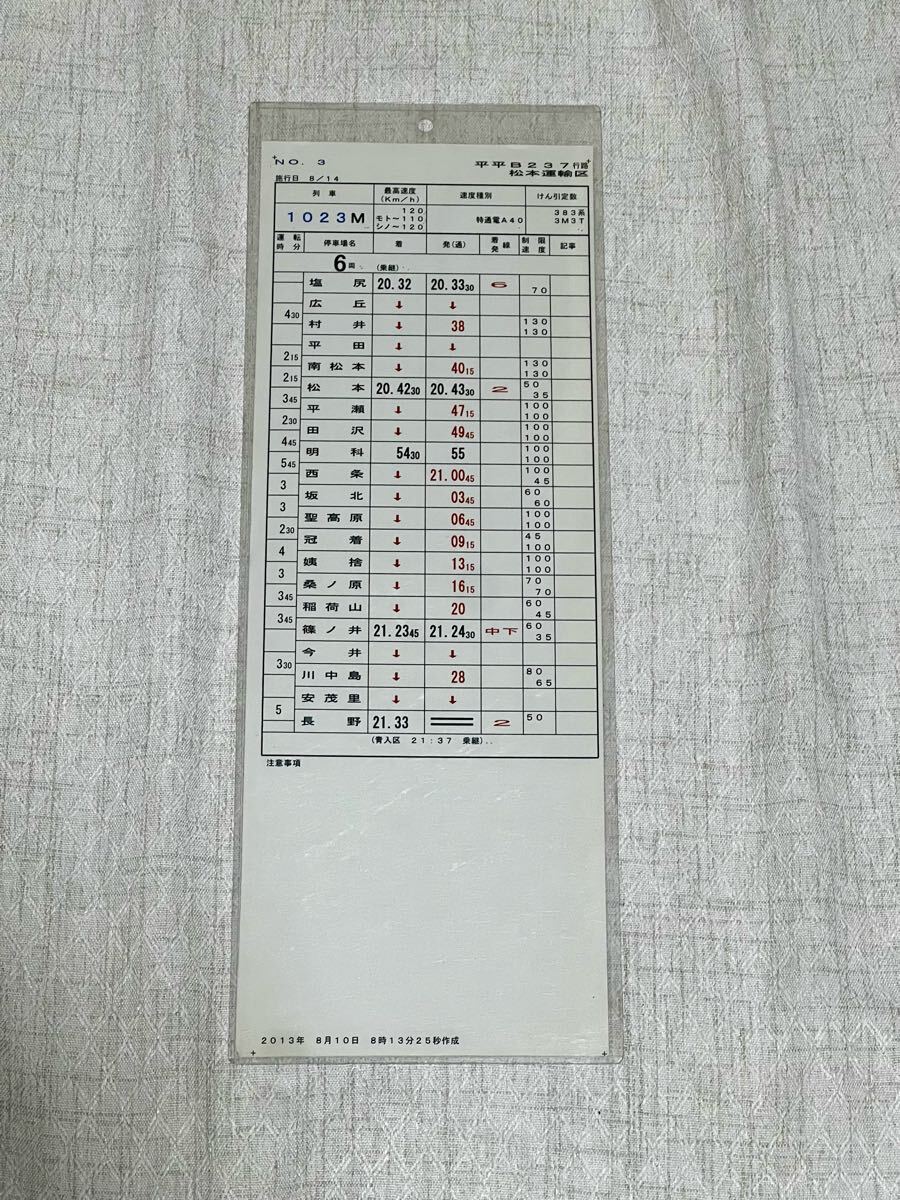 NO. 3 平平B237行路
施行日 8/14 松本運輸区
列車 最高速度(Km/h) 速度種別 けん引定数
1023M 120 モト～110 シノ～120 特通電A40 383系 3M3T
運転時分 停車場名 着 発(通) 着発線 制限速度 記事
6両 (乗継)
塩尻 20.32 20.33 30 6 70
広丘 ↓ ↓
4 30
村井 ↓ 38 130 130
平田 ↓ ↓
2 15
南松本 ↓ 40 15 130 130
2 15
松本 20.42 30 20.43 30 2 50 35
3 45
平瀬 ↓ 47 15 100 100
2 30
田沢 ↓ 49 45 100 100
4 45
明科 54 30 55 100 100
5 45
西条 ↓ 21.00 45 100 45
3
坂北 ↓ 03 45 60 60
3
聖高原 ↓ 06 45 100 100
2 30
冠着 ↓ 09 15 45 100
4
姨捨 ↓ 13 15 100 100
3
桑ノ原 ↓ 16 15 70 70
3 45
稲荷山 ↓ 20 60 45
3 45
篠ノ井 21.23 45 21.24 30 中下 60 35
今井 ↓ ↓
3 30
川中島 ↓ 28 80 65
安茂里 ↓ ↓
5
長野 21.33 2 50
(青入区 21:37 乗継)
注意事項
2013年 8月10日 8時13分25秒作成